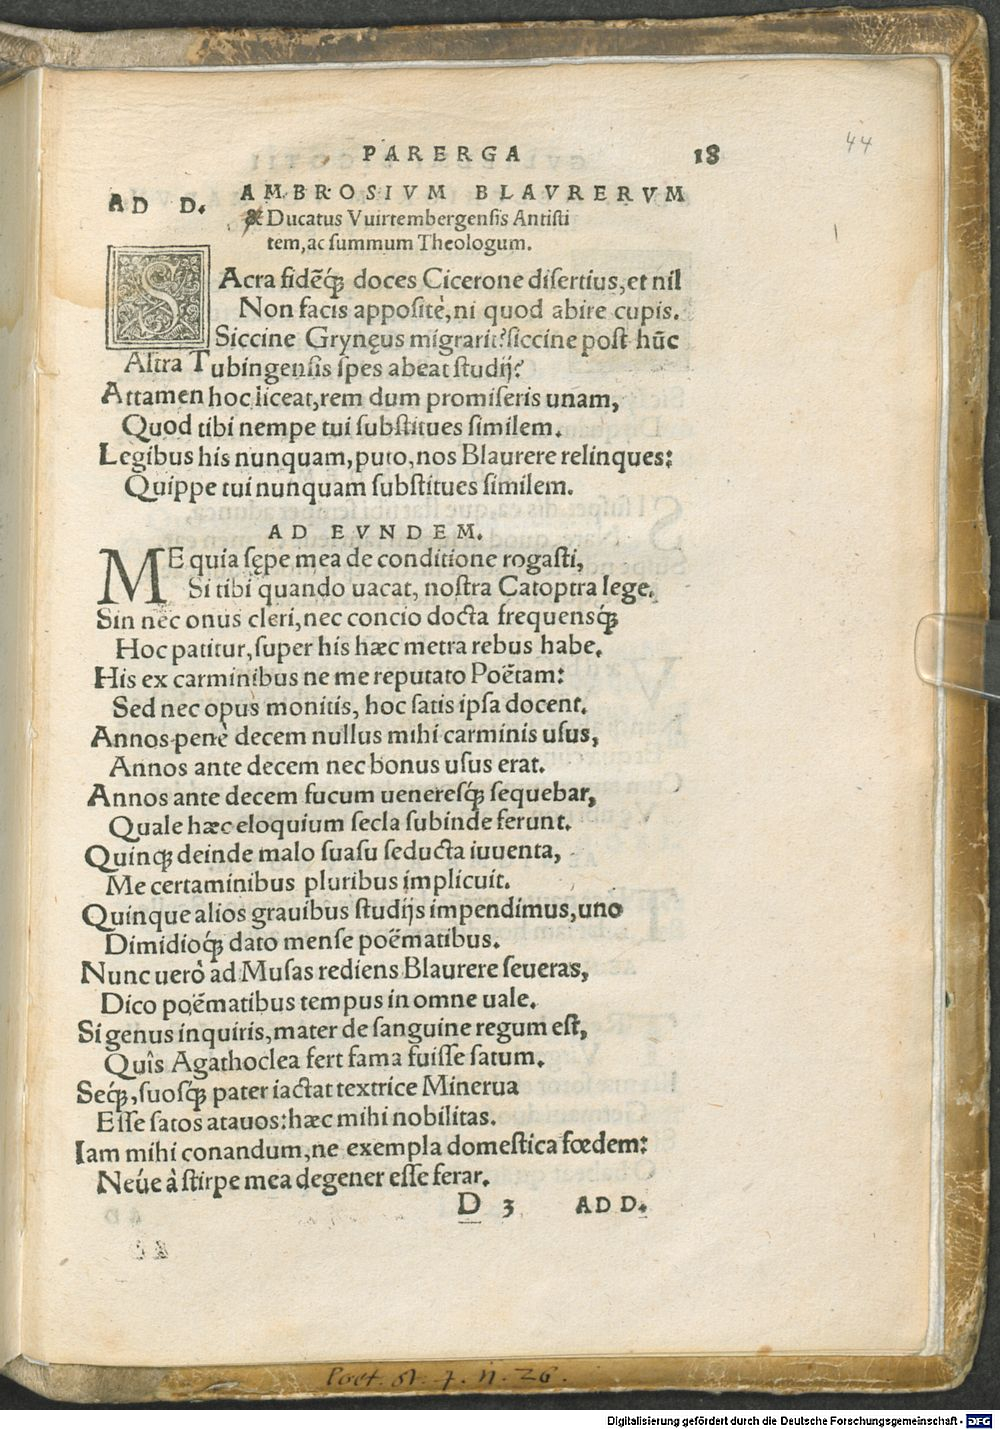 PARERGA 18
44
AD D. AMBROSIVM BLAVRERVM
& Ducatus Vuirtembergensis Antisti
tem, ac summum Theologum.
SAcra fidẽq́; doces Cicerone disertius, et nil
Non facis appositè, ni quod abire cupis.
Siccine Grynęus migrarit? siccine post hũc
Astra Tubingensis spes abeat studij?
Attamen hoc liceat, rem dum promiseris unam,
Quod tibi nempe tui substitues similem.
Legibus his nunquam, puto, nos Blaurere relinques:
Quippe tui nunquam substitues similem.
AD EVNDEM.
ME quia sępe mea de conditione rogasti,
Si tibi quando uacat, nostra Catoptra lege.
Sin nec onus cleri, nec concio docta frequensq́;
Hoc patitur, super his hæc metra rebus habe.
His ex carminibus ne me reputato Poëtam:
Sed nec opus monitis, hoc satis ipsa docent.
Annos penè decem nullus mihi carminis usus,
Annos ante decem nec bonus usus erat.
Annos ante decem fucum ueneresq́; sequebar,
Quale hæc eloquium secla subinde ferunt.
Quinq; deinde malo suasu seducta iuuenta,
Me certaminibus pluribus implicuit.
Quinque alios grauibus studijs impendimus, uno
Dimidioq́; dato mense poëmatibus.
Nunc uerò ad Musas rediens Blaurere seueras,
Dico poëmatibus tempus in omne uale.
Si genus inquiris, mater de sanguine regum est,
Quîs Agathoclea fert fama fuisse satum.
Seq́;, suosq́; pater iactat textrice Minerua
Esse satos atauos: hæc mihi nobilitas.
Iam mihi conandum, ne exempla domestica fœdem:
Neúe à stirpe mea degener esse ferar.
D 3 AD D.
Poet. st. 7. n. 26.
Digitalisierung gefördert durch die Deutsche Forschungsgemeinschaft - DFG